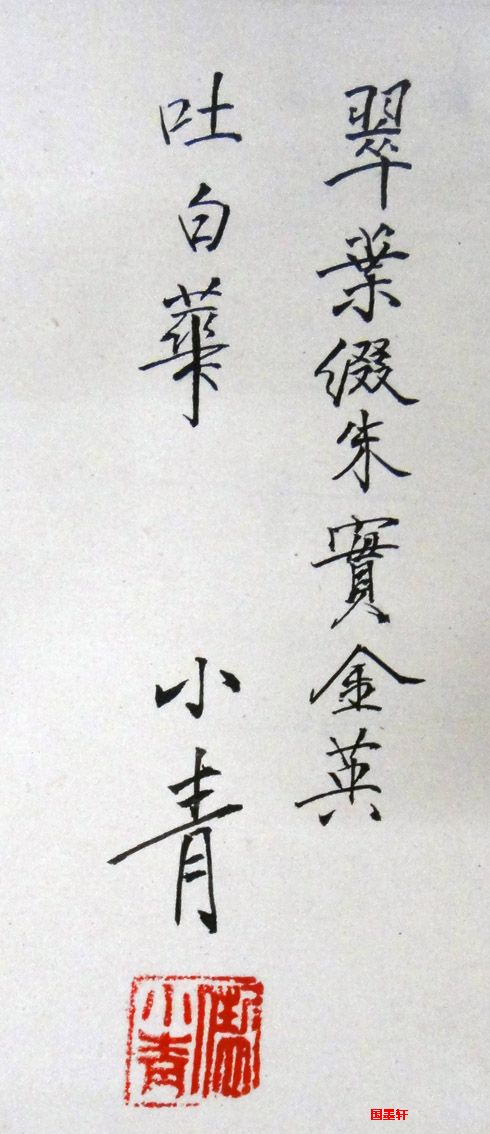 翠葉綴朱實金英
吐白華
小青
小青
国墨轩